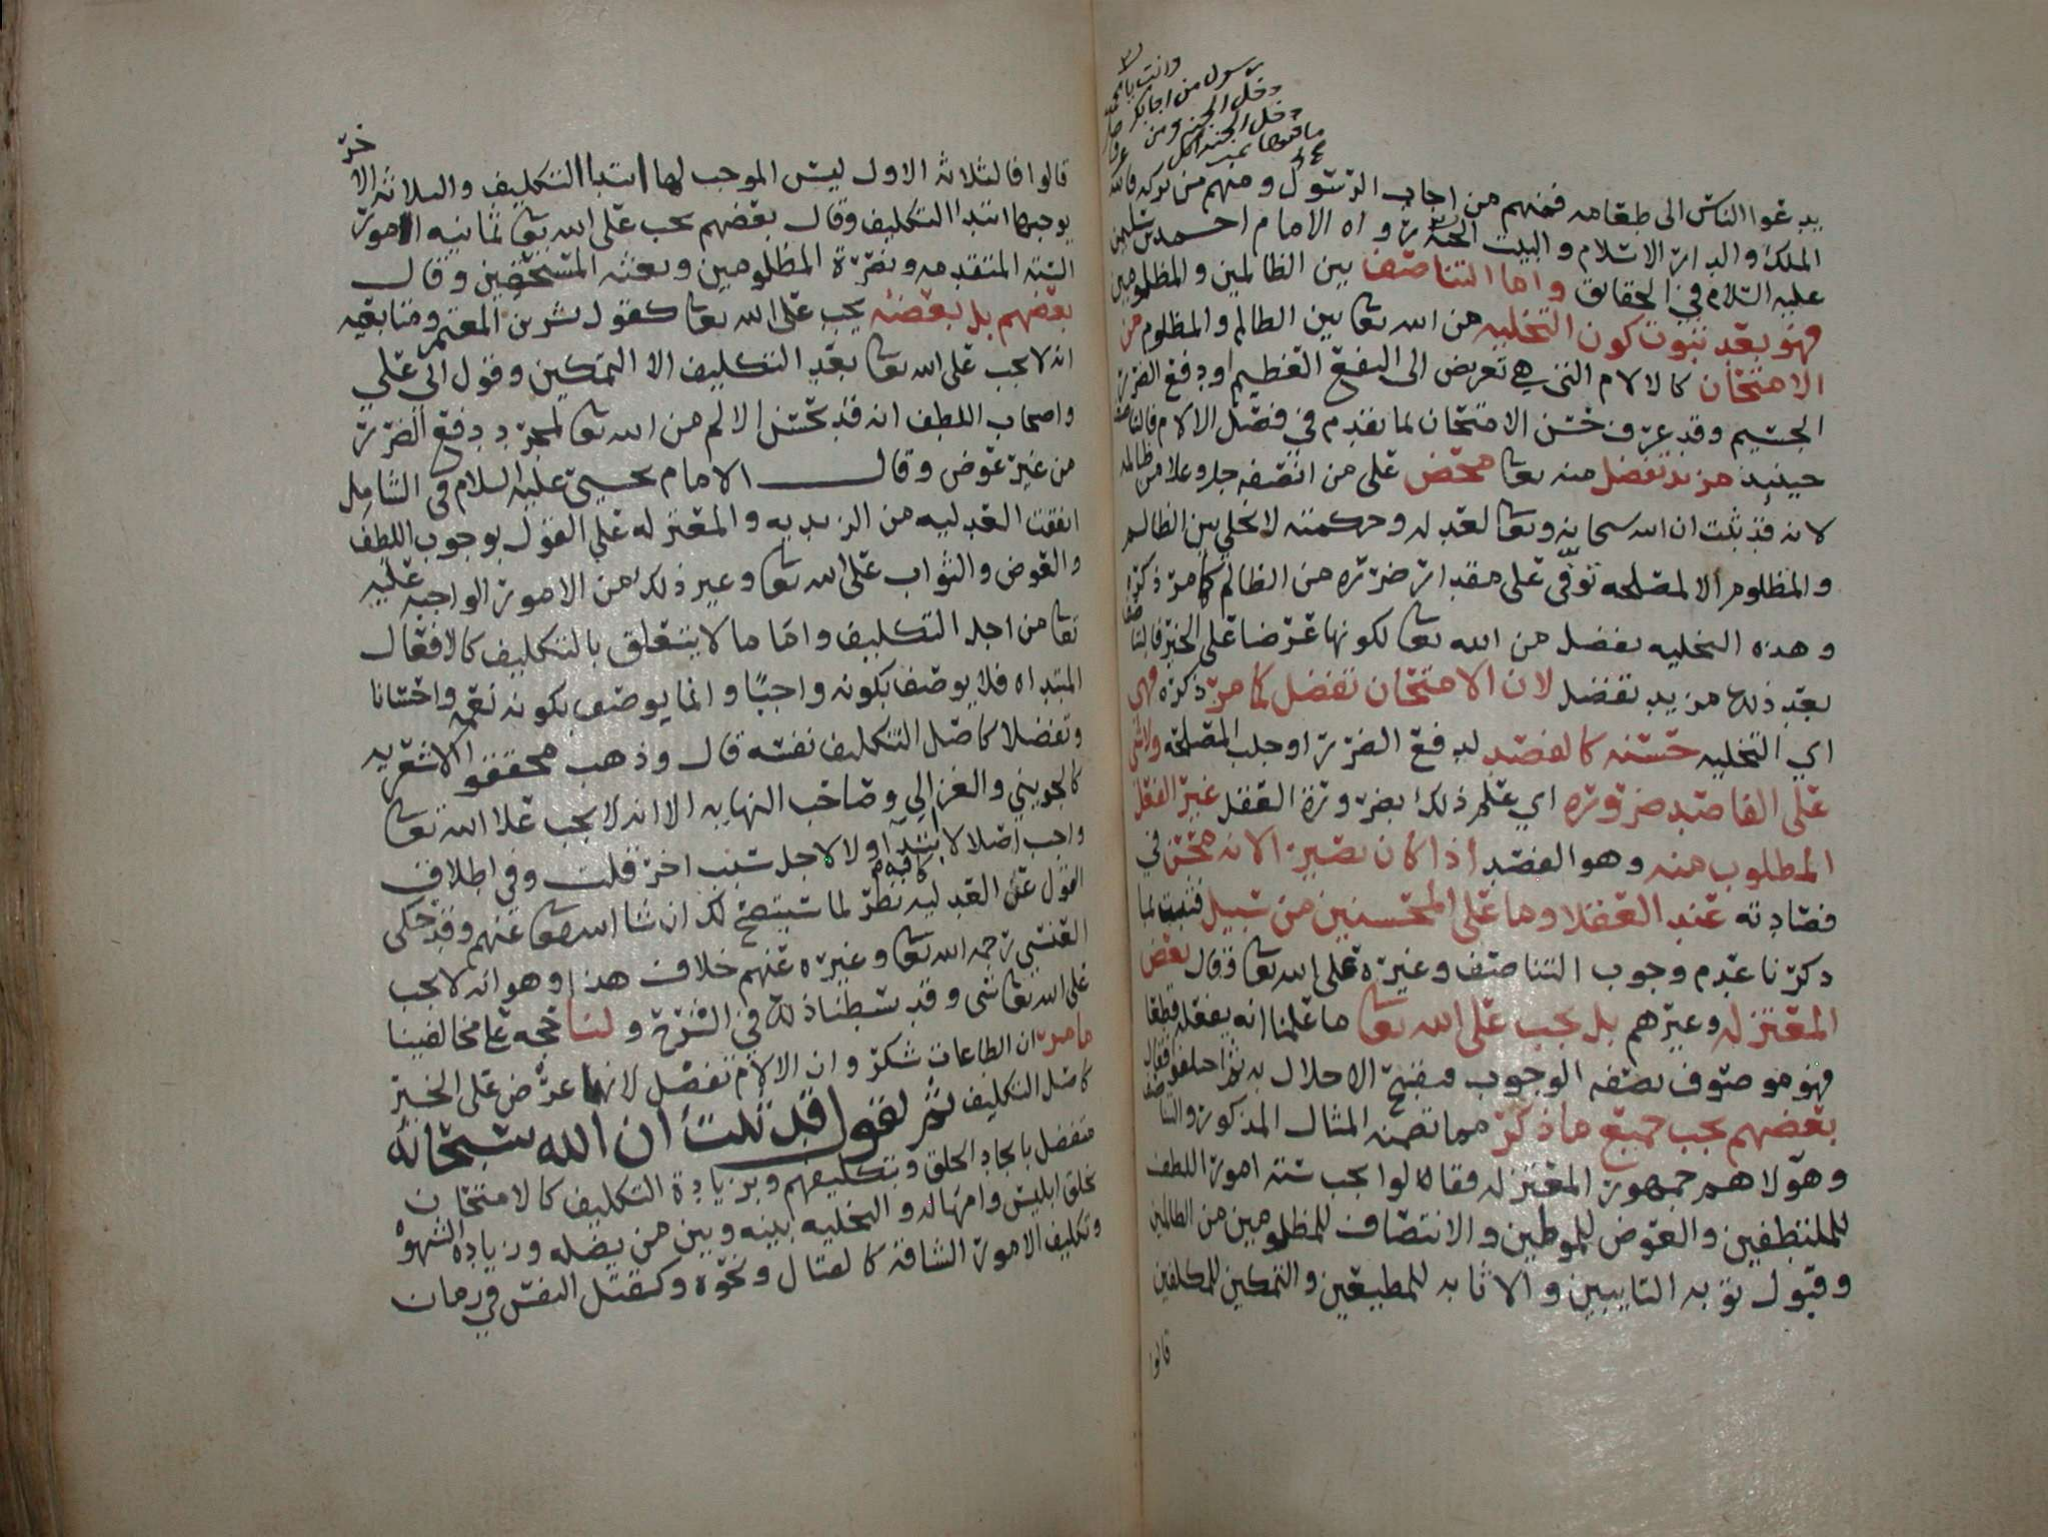 وانت يا محمد
رسول من اجابك
دخل الجنة ومن
دخل الجنة اكل
ما فيها
يدعوا الناس الى طعامه فمنهم من اجاب الرسول ومنهم من تركه فالله
الملك والدار الاسلام والبيت الجنة رواه الامام احمد بن سليمن
عليه السلام في الحقائق واما التناصف بين الظالمين والمظلومين
فهو بعد ثبوت كون التخليه من الله تعا بين الظالم والمظلوم من
الامتحان كالالام التي هي تعريض الى النفع العظيم او دفع الضرر
الجسيم وقد عرف حسن الامتحان لما تقدم في فصل الالام فالتناصف
حينيذ مزيد تفضل منه تعا محض على من انصفه جل وعلا من ظالمه
لانه قد ثبت ان الله سبحانه وتعا لعدله وحكمته لا يخلي بين الظالم
والمظلوم الا لمصلحه توفي على مقدار ضرره من الظالم كما مر ذكره
وهذه التخليه تفضل من الله تعا لكونها عرضا على الخير فالتناصف
بعد ذلك مزيد تفضل لان الامتحان تفضل كما مر ذكره فهي
اي التخليه حسنه كالفصد لدفع الضرر او جلب المصلحه ولا شي
على الفاصد ضرورة اي علم ذلك بضرورة العقل غير الفعل
المطلوب منه وهو الفصد اذا كان بصيرا لانه محسن في
فصادته عند العقلا وما على المحسنين من سبيل فثبت لما
ذكرنا عدم وجوب التناصف وغيره على الله تعا وقال بعض
المعتزله وغيرهم بل يجب على الله تعا ما علمنا انه يفعله قطعا
فهو موصوف بصفه الوجوب فيقبح الاخلال به ثم اختلفوا فقال
بعضهم يجب جميع ما ذكر مما تضمنه المثال المذكور والتناصف
وهولا هم جمهور المعتزله فقالوا يجب ستة امور اللطف
للملتطفين والعوض للمولمين والانتصاف للمظلومين من الظالمين
وقبول توبه التايبين والاثابه للمطيعين والتمكين للمكلفين
قالوا
قالوا فالثلاثه الاول ليس الموجب لها ابتدا التكليف والثلاثه الاخر
يوجبها ابتدا التكليف وقال بعضهم يجب على الله تعا ثمانيه امور
الستة المتقدمه ونصرة المظلومين وبعثه المستحقين وقال
بعضهم بل بعضه يجب على الله تعا كقول بشر بن المعتمر ومتابعيه
انه لا يجب على الله تعا بعد التكليف الا التمكين وقول ابي علي
واصحاب اللطف انه قد يحسن الالم من الله تعا لمجرد دفع الضرر
من غير عوض وقال الامام يحيى عليه السلام في الشامل
اتفقت العدليه من الزيديه والمعتزله على القول بوجوب اللطف
والعوض والثواب على الله تعا وغير ذلك من الامور الواجبه عليه
تعا من اجل التكليف واما ما لا يتعلق بالتكليف كالافعال
المبتداه فلا يوصف بكونه واجبًا وانما يوصف بكونه نعمه واحسانا
وتفضلا كاصل التكليف نفسه قال وذهب محققو الاشعريه
كالجويني والغزالي وصاحب النهايه الا انه لا يجب على الله تعا
واجب اصلا لا ابتدآ ولا لاجل سبب اخر قلت وفي اطلاق
القول عن العدليه كافه نظر لما سيتضح لك ان شا الله تعا عنهم وقد حكى
العنسي رحمه الله تعا وغيره عنهم خلاف هذا وهو انه لا يجب
على الله تعا شي وقد بسطنا ذلك في الشرح ولنا حجه على مخالفينا
ما مر ان الطاعات شكر وان الالام تفضل لانها عرض على الخير
كاصل التكليف ثم نقول قد ثبت ان الله سبحانه
متفضل بايجاد الخلق وبتكليفهم وبزيادة التكليف كالامتحان
بخلق ابليس وامهاله والتخليه بينه وبين من يضله وزيادة الشهوه
وتكليف الامور الشاقة كالقتال ونحوه وكقتل النفس في زمان